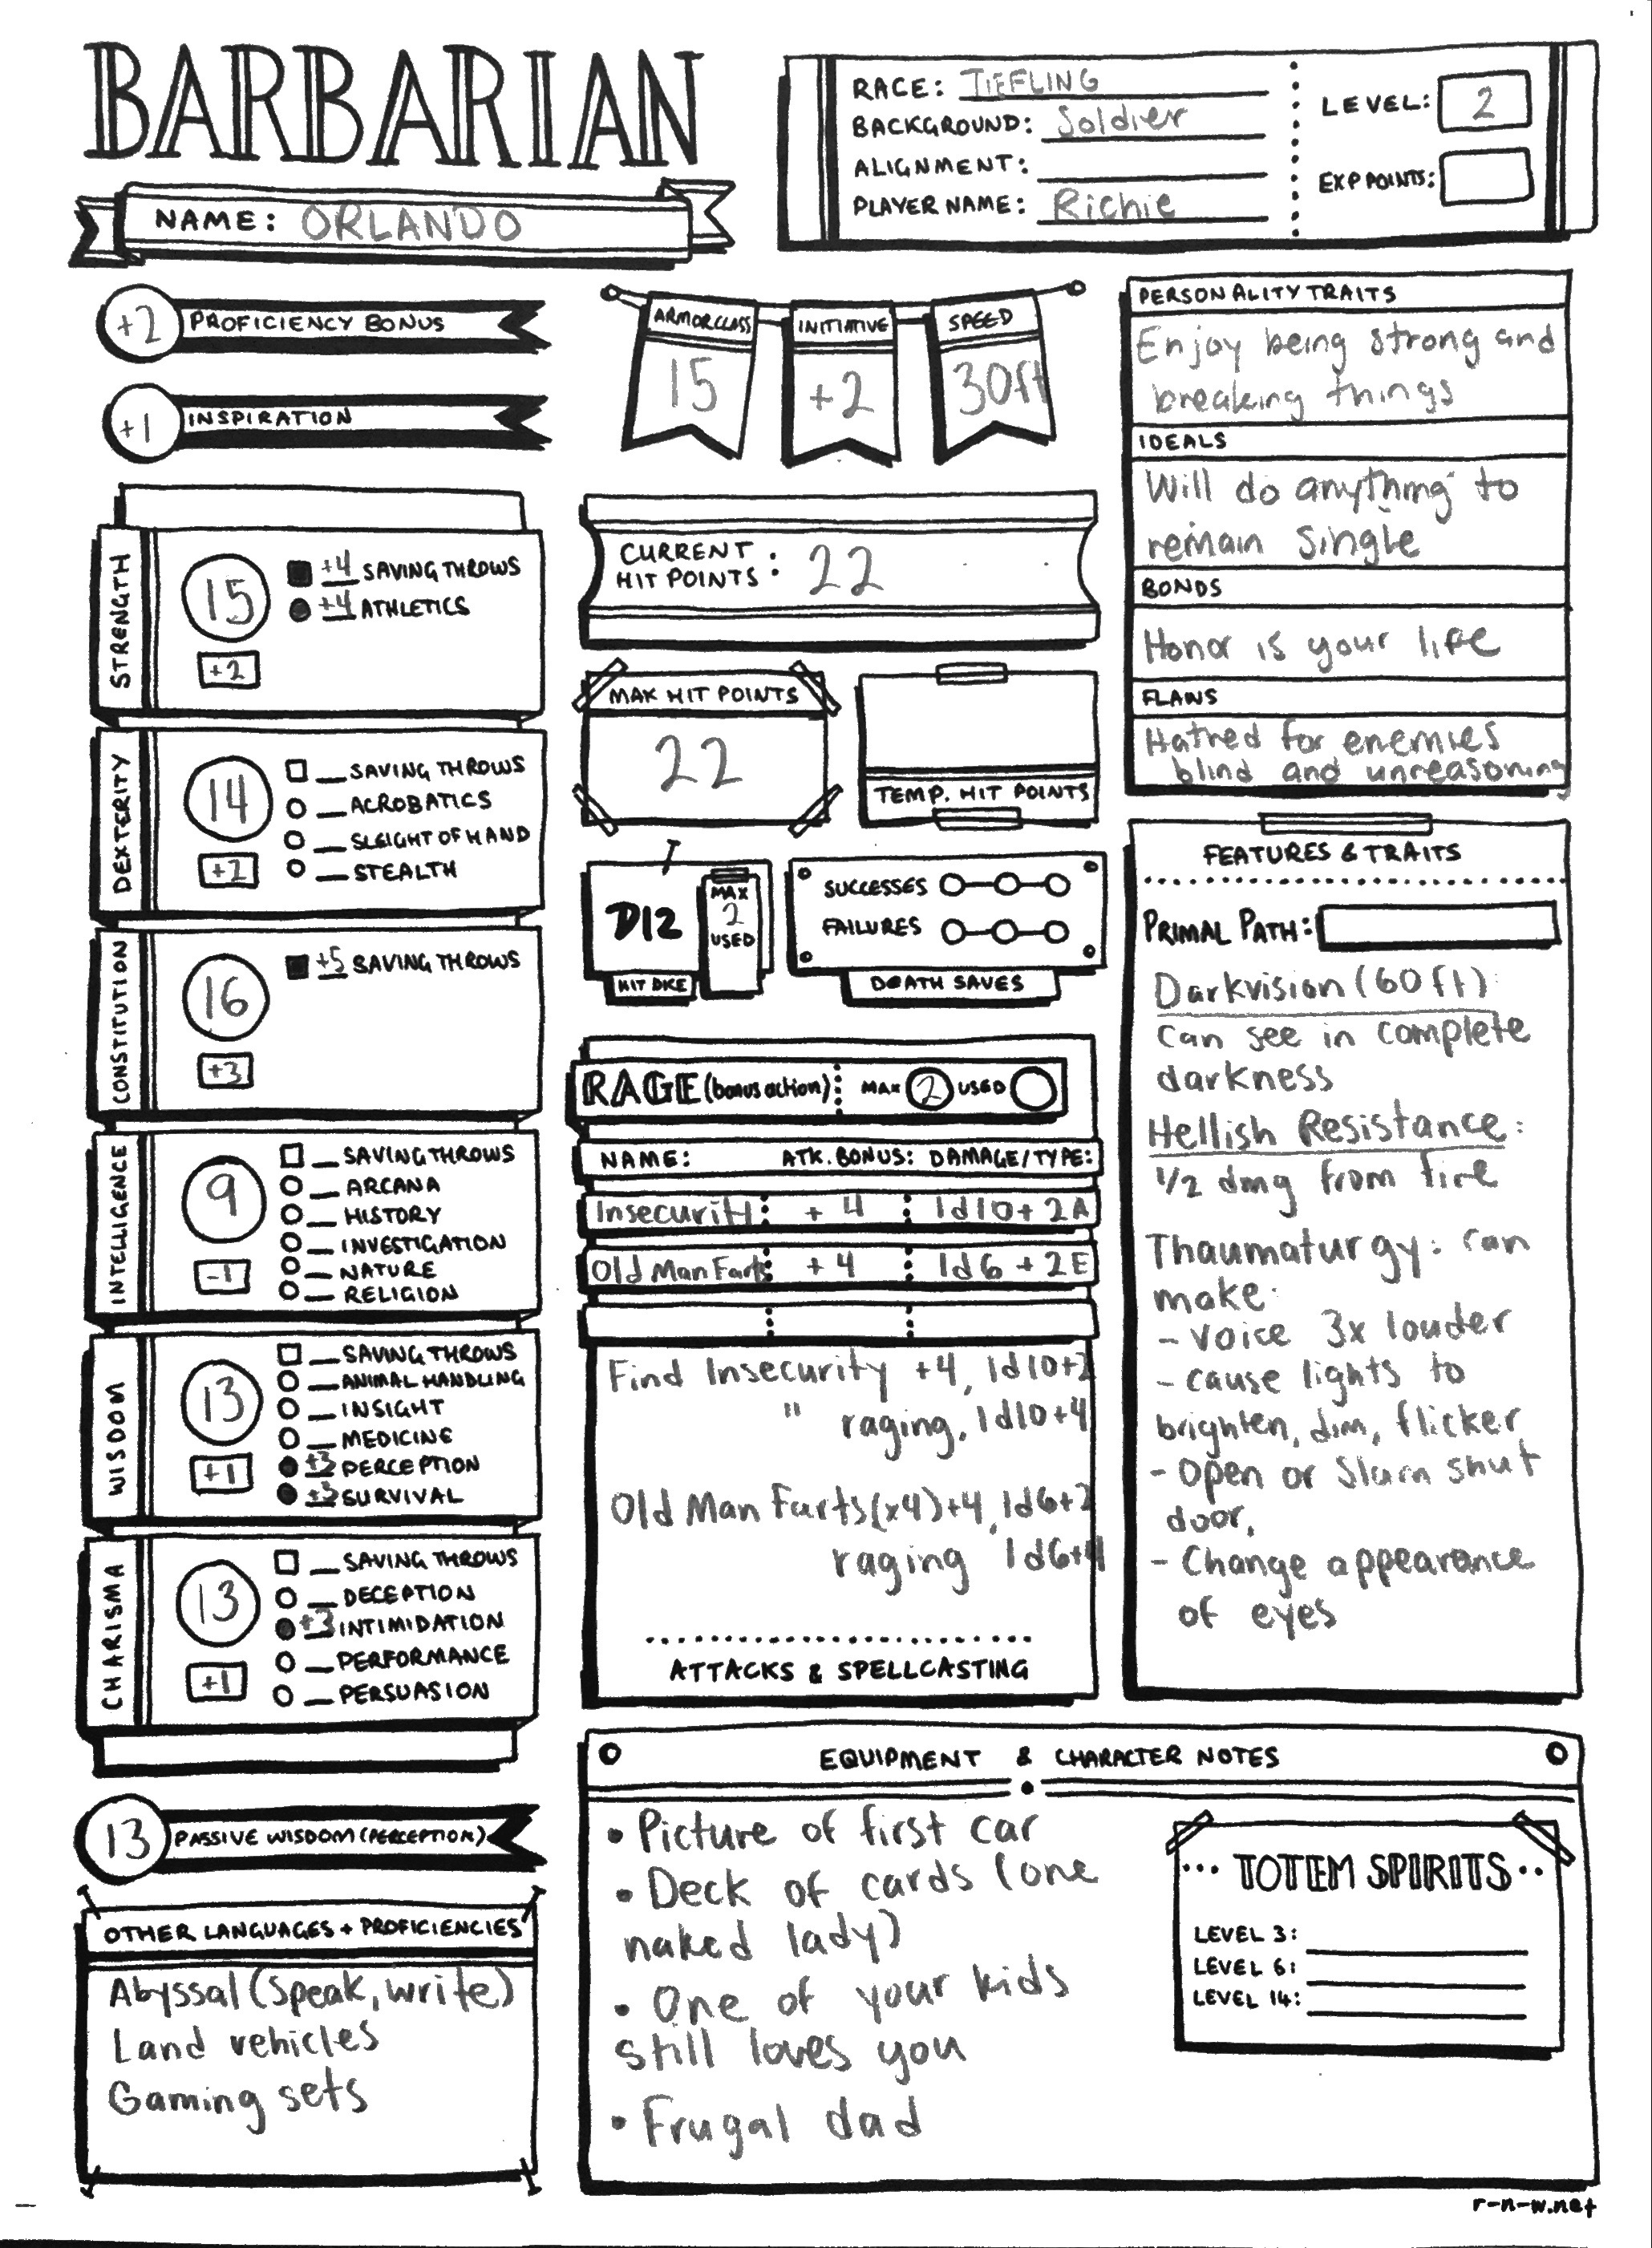 BARBARIAN
NAME: ORLANDO
RACE: TIEFLING
BACKGROUND: Soldier
ALIGNMENT:
PLAYER NAME: Richie
LEVEL: 2
EXP POINTS:
+2 PROFICIENCY BONUS
+1 INSPIRATION
STRENGTH
15
+2
+4 SAVING THROWS
+4 ATHLETICS
DEXTERITY
14
+2
SAVING THROWS
ACROBATICS
SLEIGHT OF HAND
STEALTH
CONSTITUTION
16
+3
+5 SAVING THROWS
INTELLIGENCE
9
-1
SAVING THROWS
ARCANA
HISTORY
INVESTIGATION
NATURE
RELIGION
WISDOM
13
+1
SAVING THROWS
ANIMAL HANDLING
INSIGHT
MEDICINE
+3 PERCEPTION
+3 SURVIVAL
CHARISMA
13
+1
SAVING THROWS
DECEPTION
+3 INTIMIDATION
PERFORMANCE
PERSUASION
13 PASSIVE WISDOM (PERCEPTION)
OTHER LANGUAGES + PROFICIENCIES
Abyssal (speak, write)
Land vehicles
Gaming sets
ARMOR CLASS
15
INITIATIVE
+2
SPEED
30ft
CURRENT
HIT POINTS: 22
MAX HIT POINTS
22
TEMP. HIT POINTS
D12
HIT DICE
MAX
2
USED
SUCCESSES
FAILURES
DEATH SAVES
RAGE (bonus action): MAX 2 USED
NAME: ATK. BONUS: DAMAGE/TYPE:
Insecurit +4 1d10+2 A
Old Man Farts +4 1d6+2 E
Find Insecurity +4, 1d10+2
" raging, 1d10+4
Old Man Farts (x4) +4, 1d6+2
raging 1d6+4
ATTACKS & SPELLCASTING
PERSONALITY TRAITS
Enjoy being strong and
breaking things
IDEALS
Will do anything to
remain single
BONDS
Honor is your life
FLAWS
Hatred for enemies
blind and unreasoning
FEATURES & TRAITS
PRIMAL PATH:
Darkvision (60 ft):
Can see in complete
darkness
Hellish Resistance:
1/2 dmg from fire
Thaumaturgy: can
make:
- voice 3x louder
- cause lights to
brighten, dim, flicker
- Open or slam shut
door,
- Change appearance
of eyes
EQUIPMENT & CHARACTER NOTES
• Picture of first car
• Deck of cards (one
naked lady)
• One of your kids
still loves you
• Frugal dad
TOTEM SPIRITS
LEVEL 3:
LEVEL 6:
LEVEL 14:
r-n-w.net